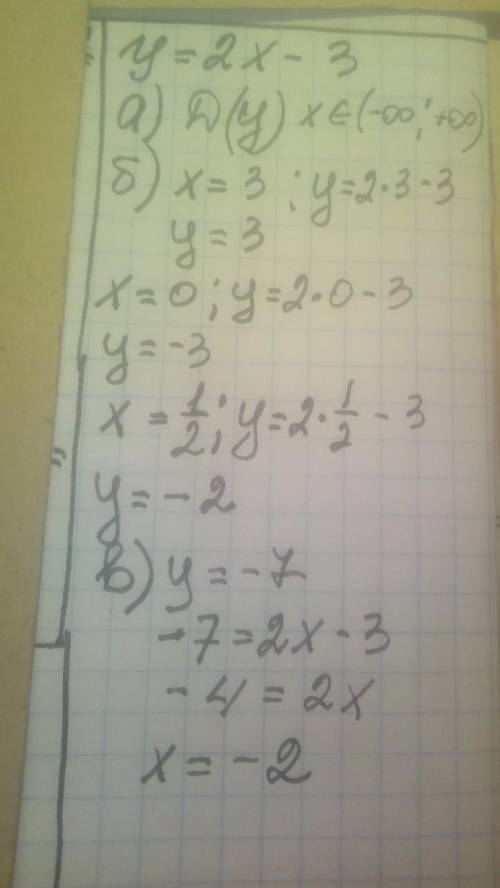 y = 2x - 3
а) Д(y) x ∈ (-∞; +∞)
б) x = 3 ; y = 2·3 - 3
y = 3
x = 0 ; y = 2·0 - 3
y = -3
x = 1/2 ; y = 2·1/2 - 3
y = -2
в) y = -7
-7 = 2x - 3
-4 = 2x
x = -2